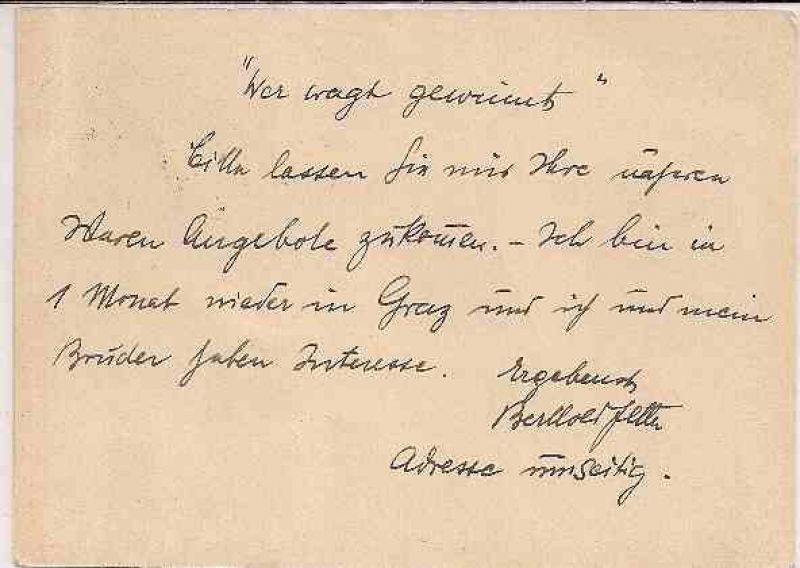 "Wer wagt gewinnt"
Bitte lassen Sie mir Ihre näheren
Waren Angebote zukomen. - Ich bin in
1 Monat wieder in Graz und ich und mein
Bruder haben Interesse.
Ergebenst
Berthold
Adresse umseitig.